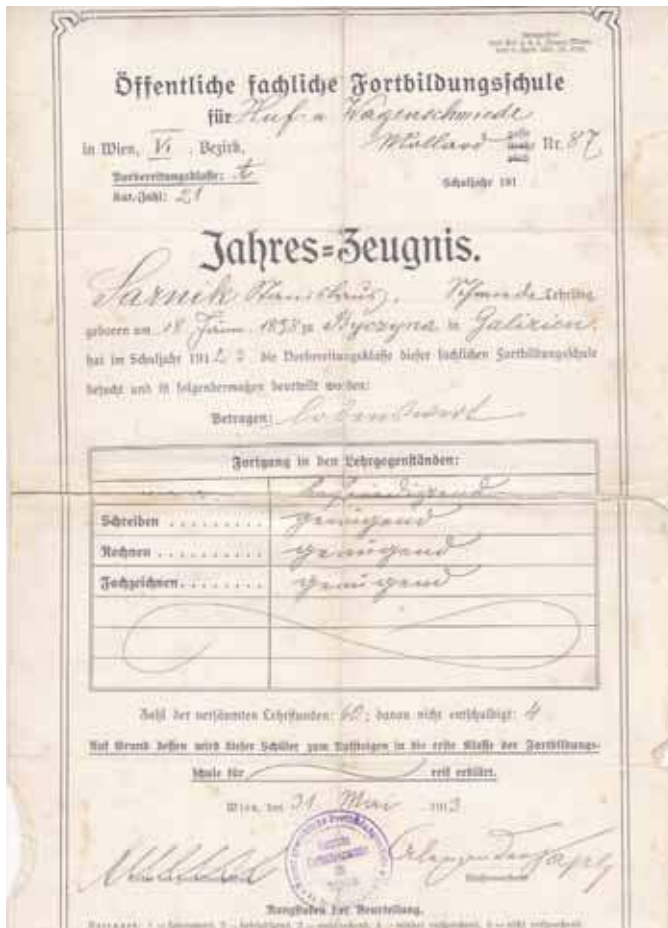 Öffentliche fachliche Fortbildungsschule
für Huf- u Wagenschmiede
in Wien, VI. Bezirk, Mollard gasse Nr. 87
Vorbereitungsklasse: A
Kat.-Zahl: 21 Schuljahr 191
Jahres=Zeugnis.
Sarnik Stanislaus, Schmiede Lehrling
geboren am 18. 1898 zu Byczyna in Galizien,
hat im Schuljahr 1912/3 die Vorbereitungsklasse dieser fachlichen Fortbildungsschule
besucht und ist folgendermaßen beurteilt worden:
Betragen: lobenswert
Fortgang in den Lehrgegenständen:
befriedigend
Schreiben . . . . . . . . genügend
Rechnen . . . . . . . . . genügend
Fachzeichnen . . . . . . . genügend
Zahl der versäumten Lehrstunden: 60; davon nicht entschuldigt: 4
Auf Grund dessen wird dieser Schüler zum Aufsteigen in die erste Klasse der Fortbildungs-
schule für reif erklärt.
Wien, den 31 Mai 1913
Rangstufen der Beurteilung.